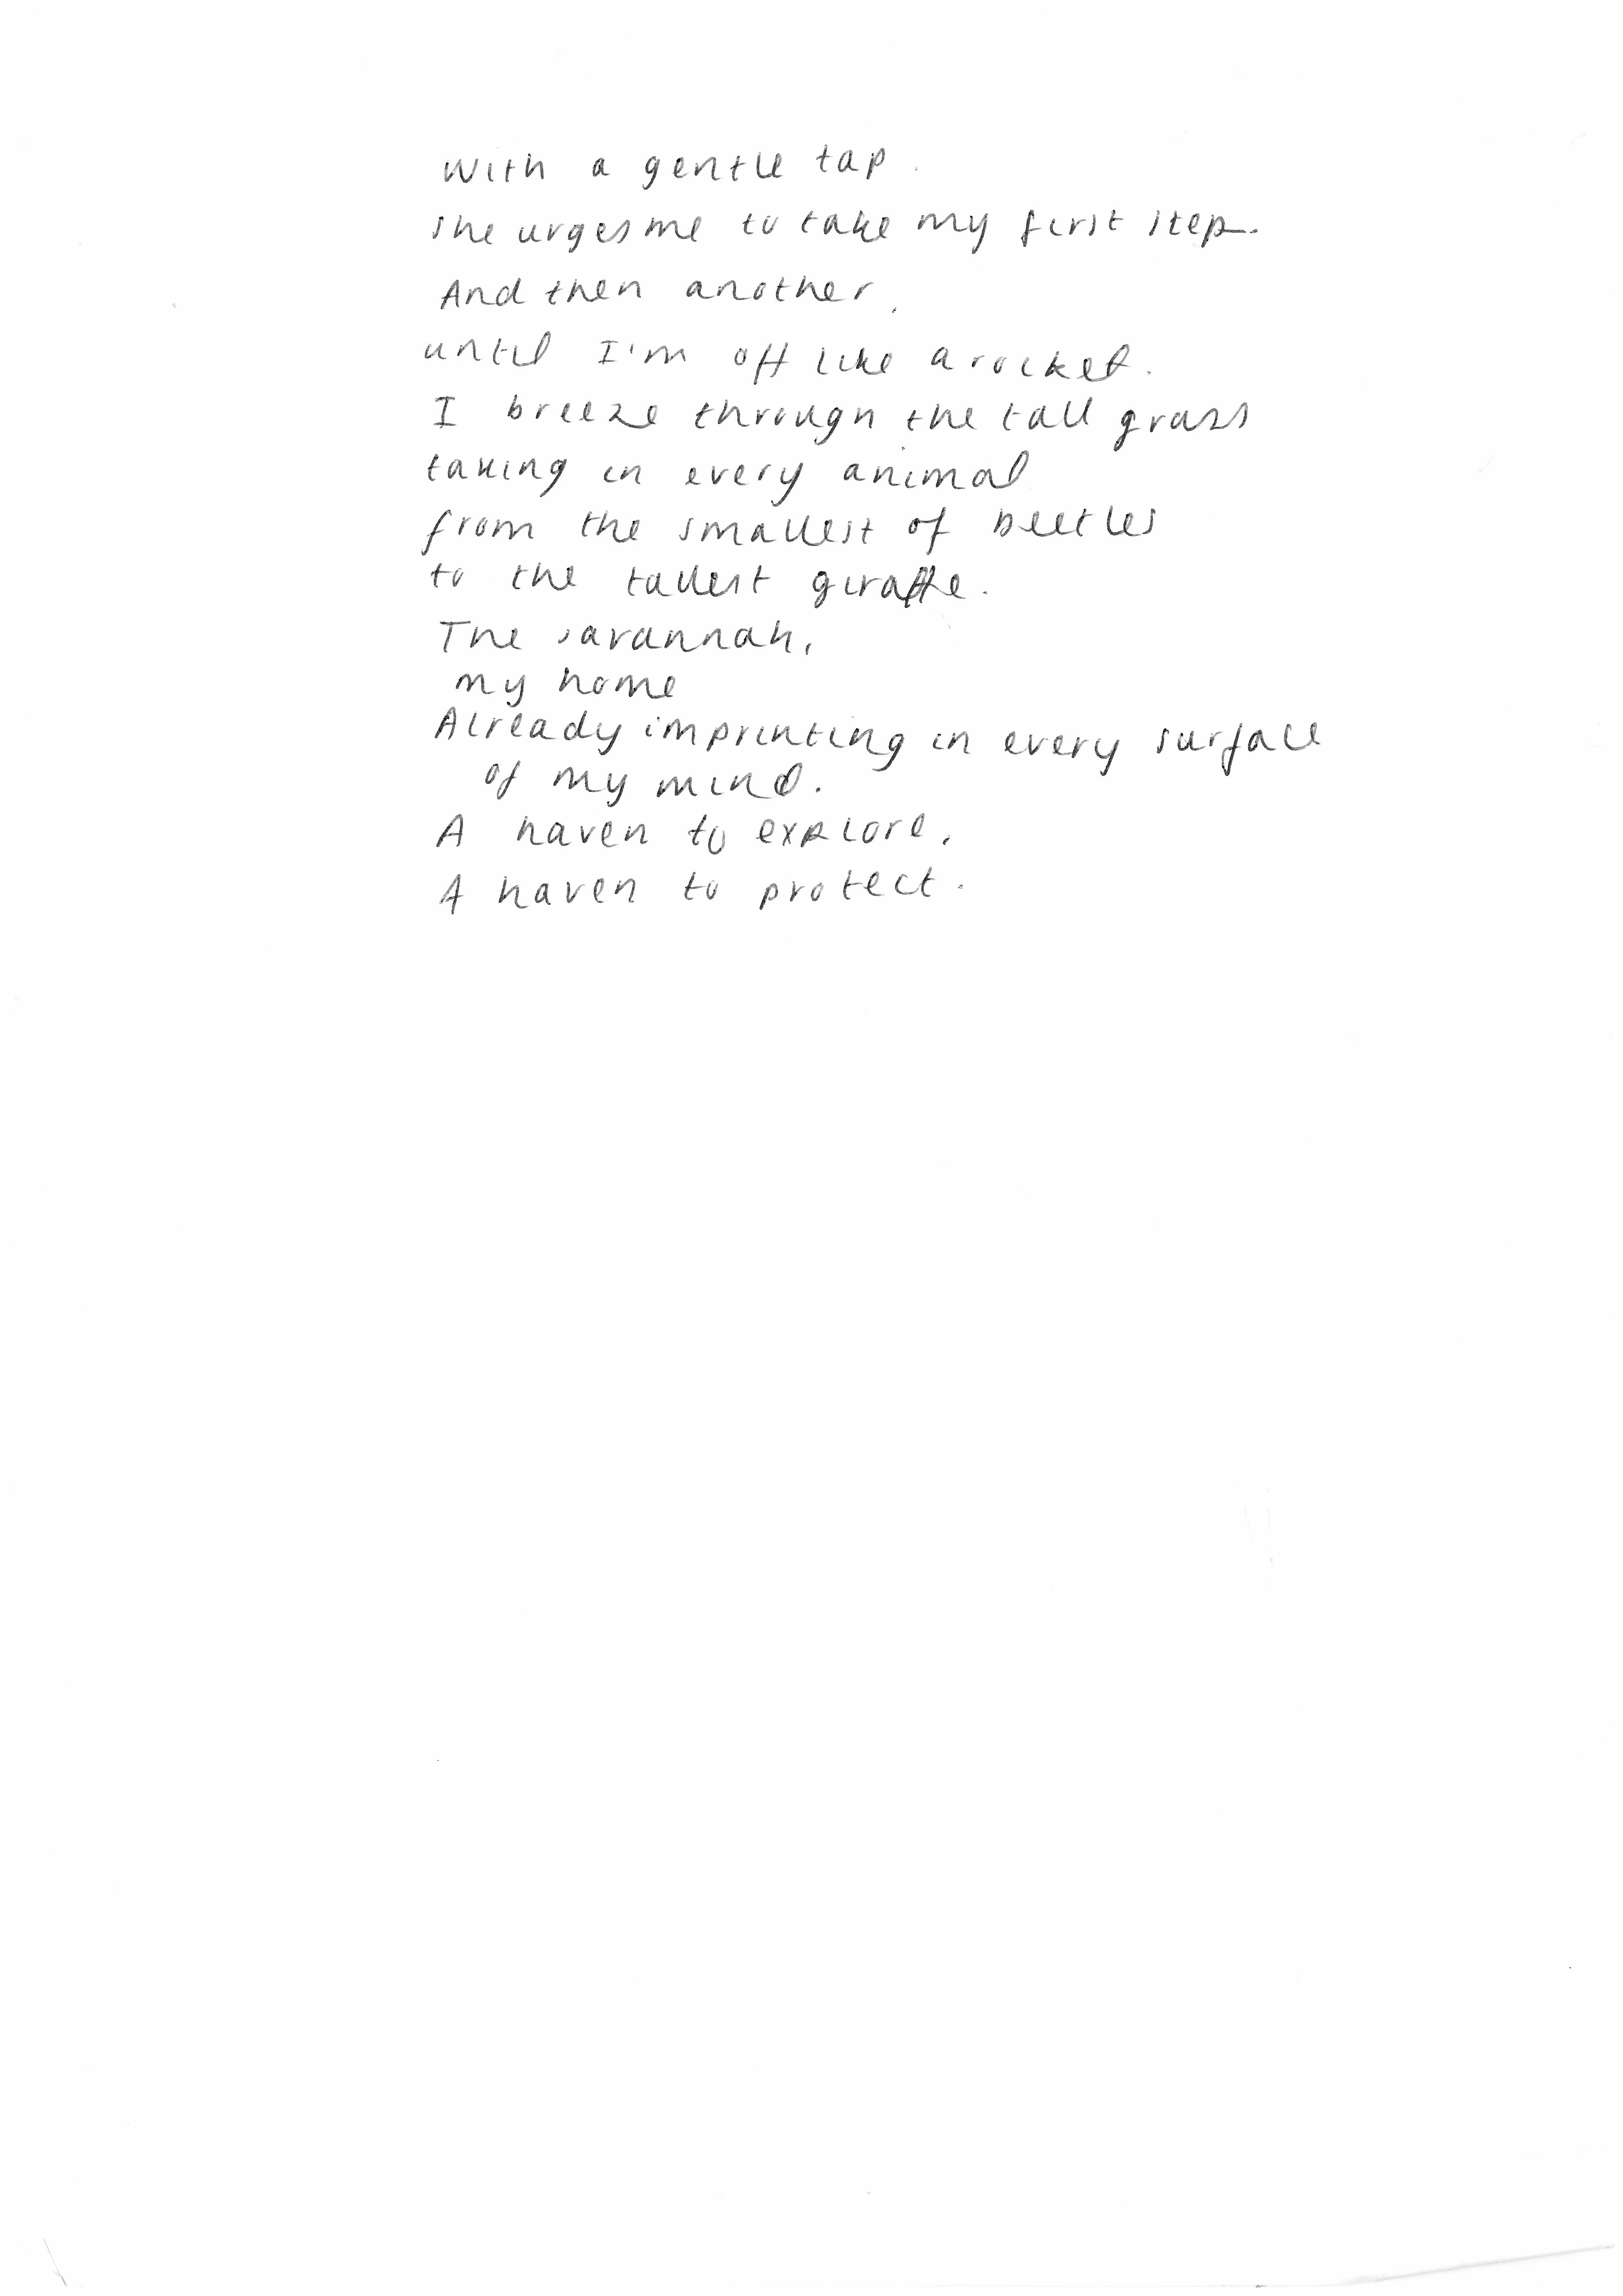 With a gentle tap.
she urges me to take my first step.
And then another,
until I'm off like a rocket.
I breeze through the tall grass
taking in every animal
from the smallest of beetles
to the tallest giraffe.
The savannah,
my home
Already imprinting in every surface
of my mind.
A haven to explore,
A haven to protect.